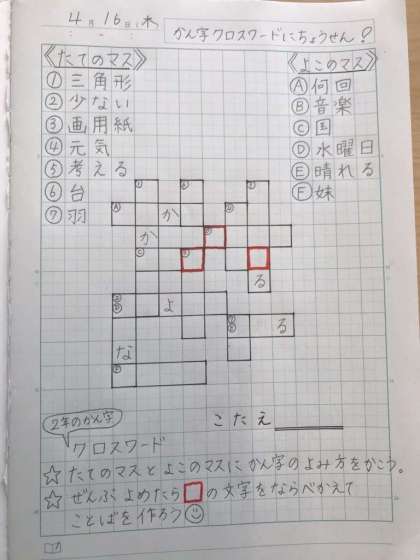 4月16日(木)
かん字クロスワードにちょうせん!
《たてのマス》
①三角形
②少ない
③画用紙
④元気
⑤考える
⑥台
⑦羽
《よこのマス》
Ⓐ何回
Ⓑ音楽
Ⓒ国
Ⓓ水曜日
Ⓔ晴れる
Ⓕ妹
か
か
る
よ
る
な
こたえ
2年のかん字
クロスワード
☆たてのマスとよこのマスにかん字のよみ方をかこう。
☆ぜんぶよめたら□の文字をならべかえて
ことばを作ろう